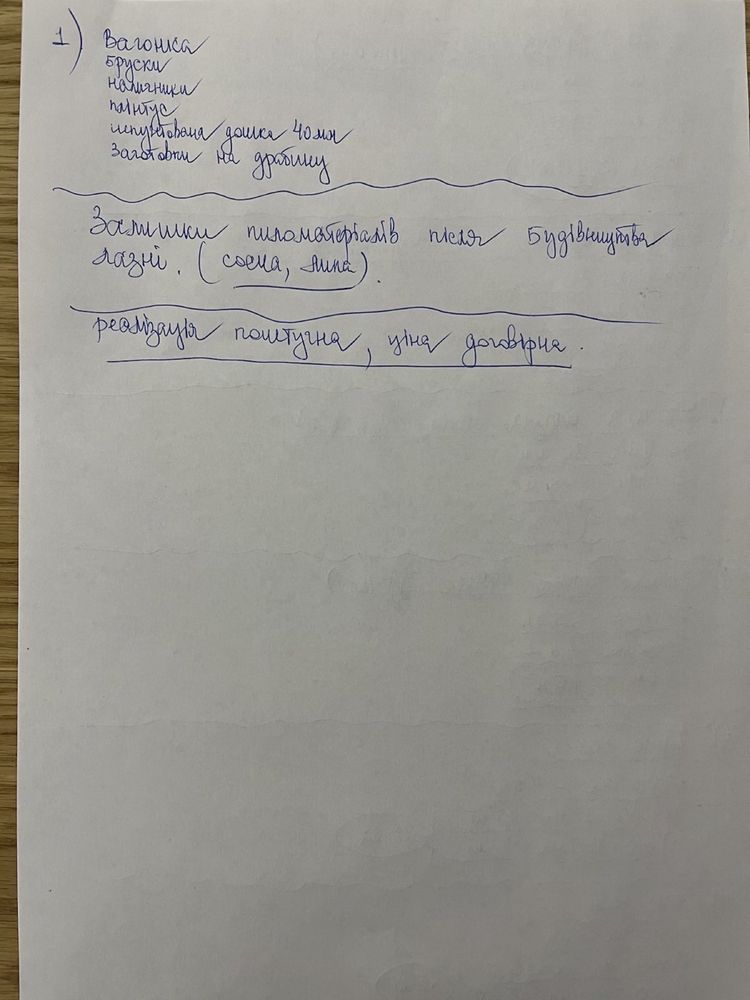 1) Вагонка
Бруски
наличники
плінтус
шпунтована дошка 40мм
Заготовки на драбину
Залишки пиломатеріалів після будівництва
лазні. (сосна, липа).
реалізація поштучна, ціна договірна.